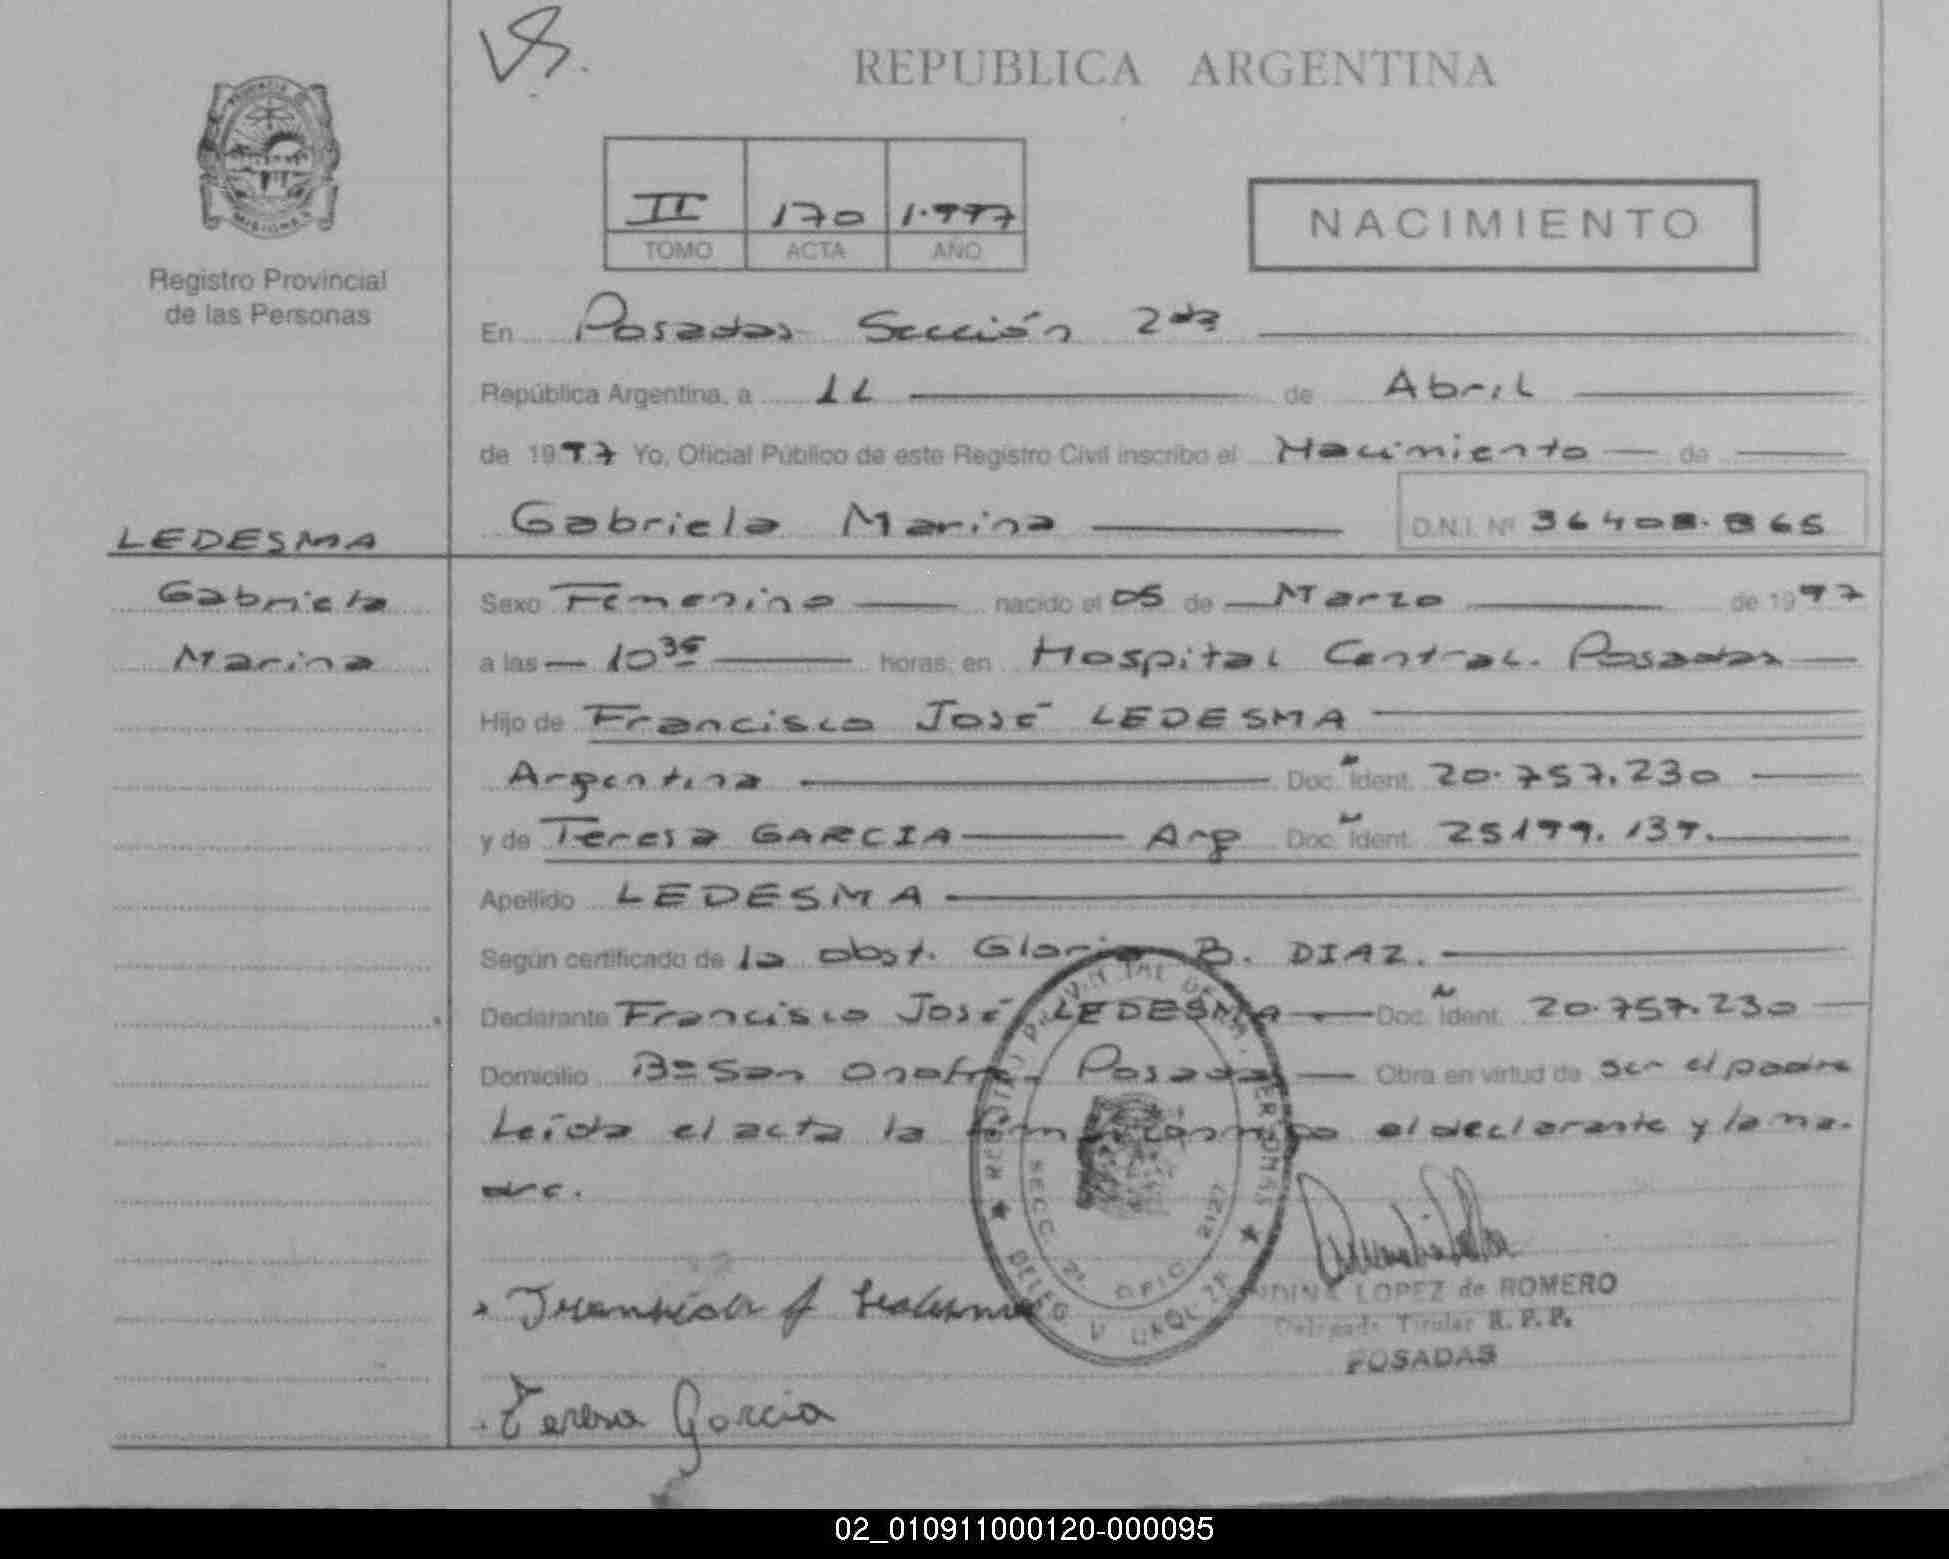 VS.
REPUBLICA ARGENTINA
PROVINCIA DE
MISIONES
Registro Provincial
de las Personas
II 170 1.997
TOMO ACTA AÑO
NACIMIENTO
En Posadas Sección 2da
República Argentina, a 11 de Abril
de 1997 Yo, Oficial Público de este Registro Civil inscribo el Nacimiento de
Gabriela Marina D.N.I. Nº 36408.865
LEDESMA
Gabriela
Marina
Sexo Femenino nacido el 05 de Marzo de 1997
a las 10 35 horas, en Hospital Central. Posadas
Hijo de Francisco José LEDESMA
Argentina Doc. Ident. 20.757.230
y de Teresa GARCIA Arg Doc. Ident. 25199.139.
Apellido LEDESMA
Según certificado de la obst. Gloria B. DIAZ.
Declarante Francisco José LEDESMA Doc. Ident. 20.757.230
Domicilio Bº San Onofre. Posadas Obra en virtud de ser el padre
Leída el acta la firma conmigo el declarante y la ma-
dre.
REGISTRO PROVINCIAL DE LAS PERSONAS
SECC. 2ª OFIC. 2127
LOPEZ de ROMERO
Delegada Titular R. P. P.
POSADAS
Francisco J Ledesma
Teresa Garcia
02_010911000120-000095